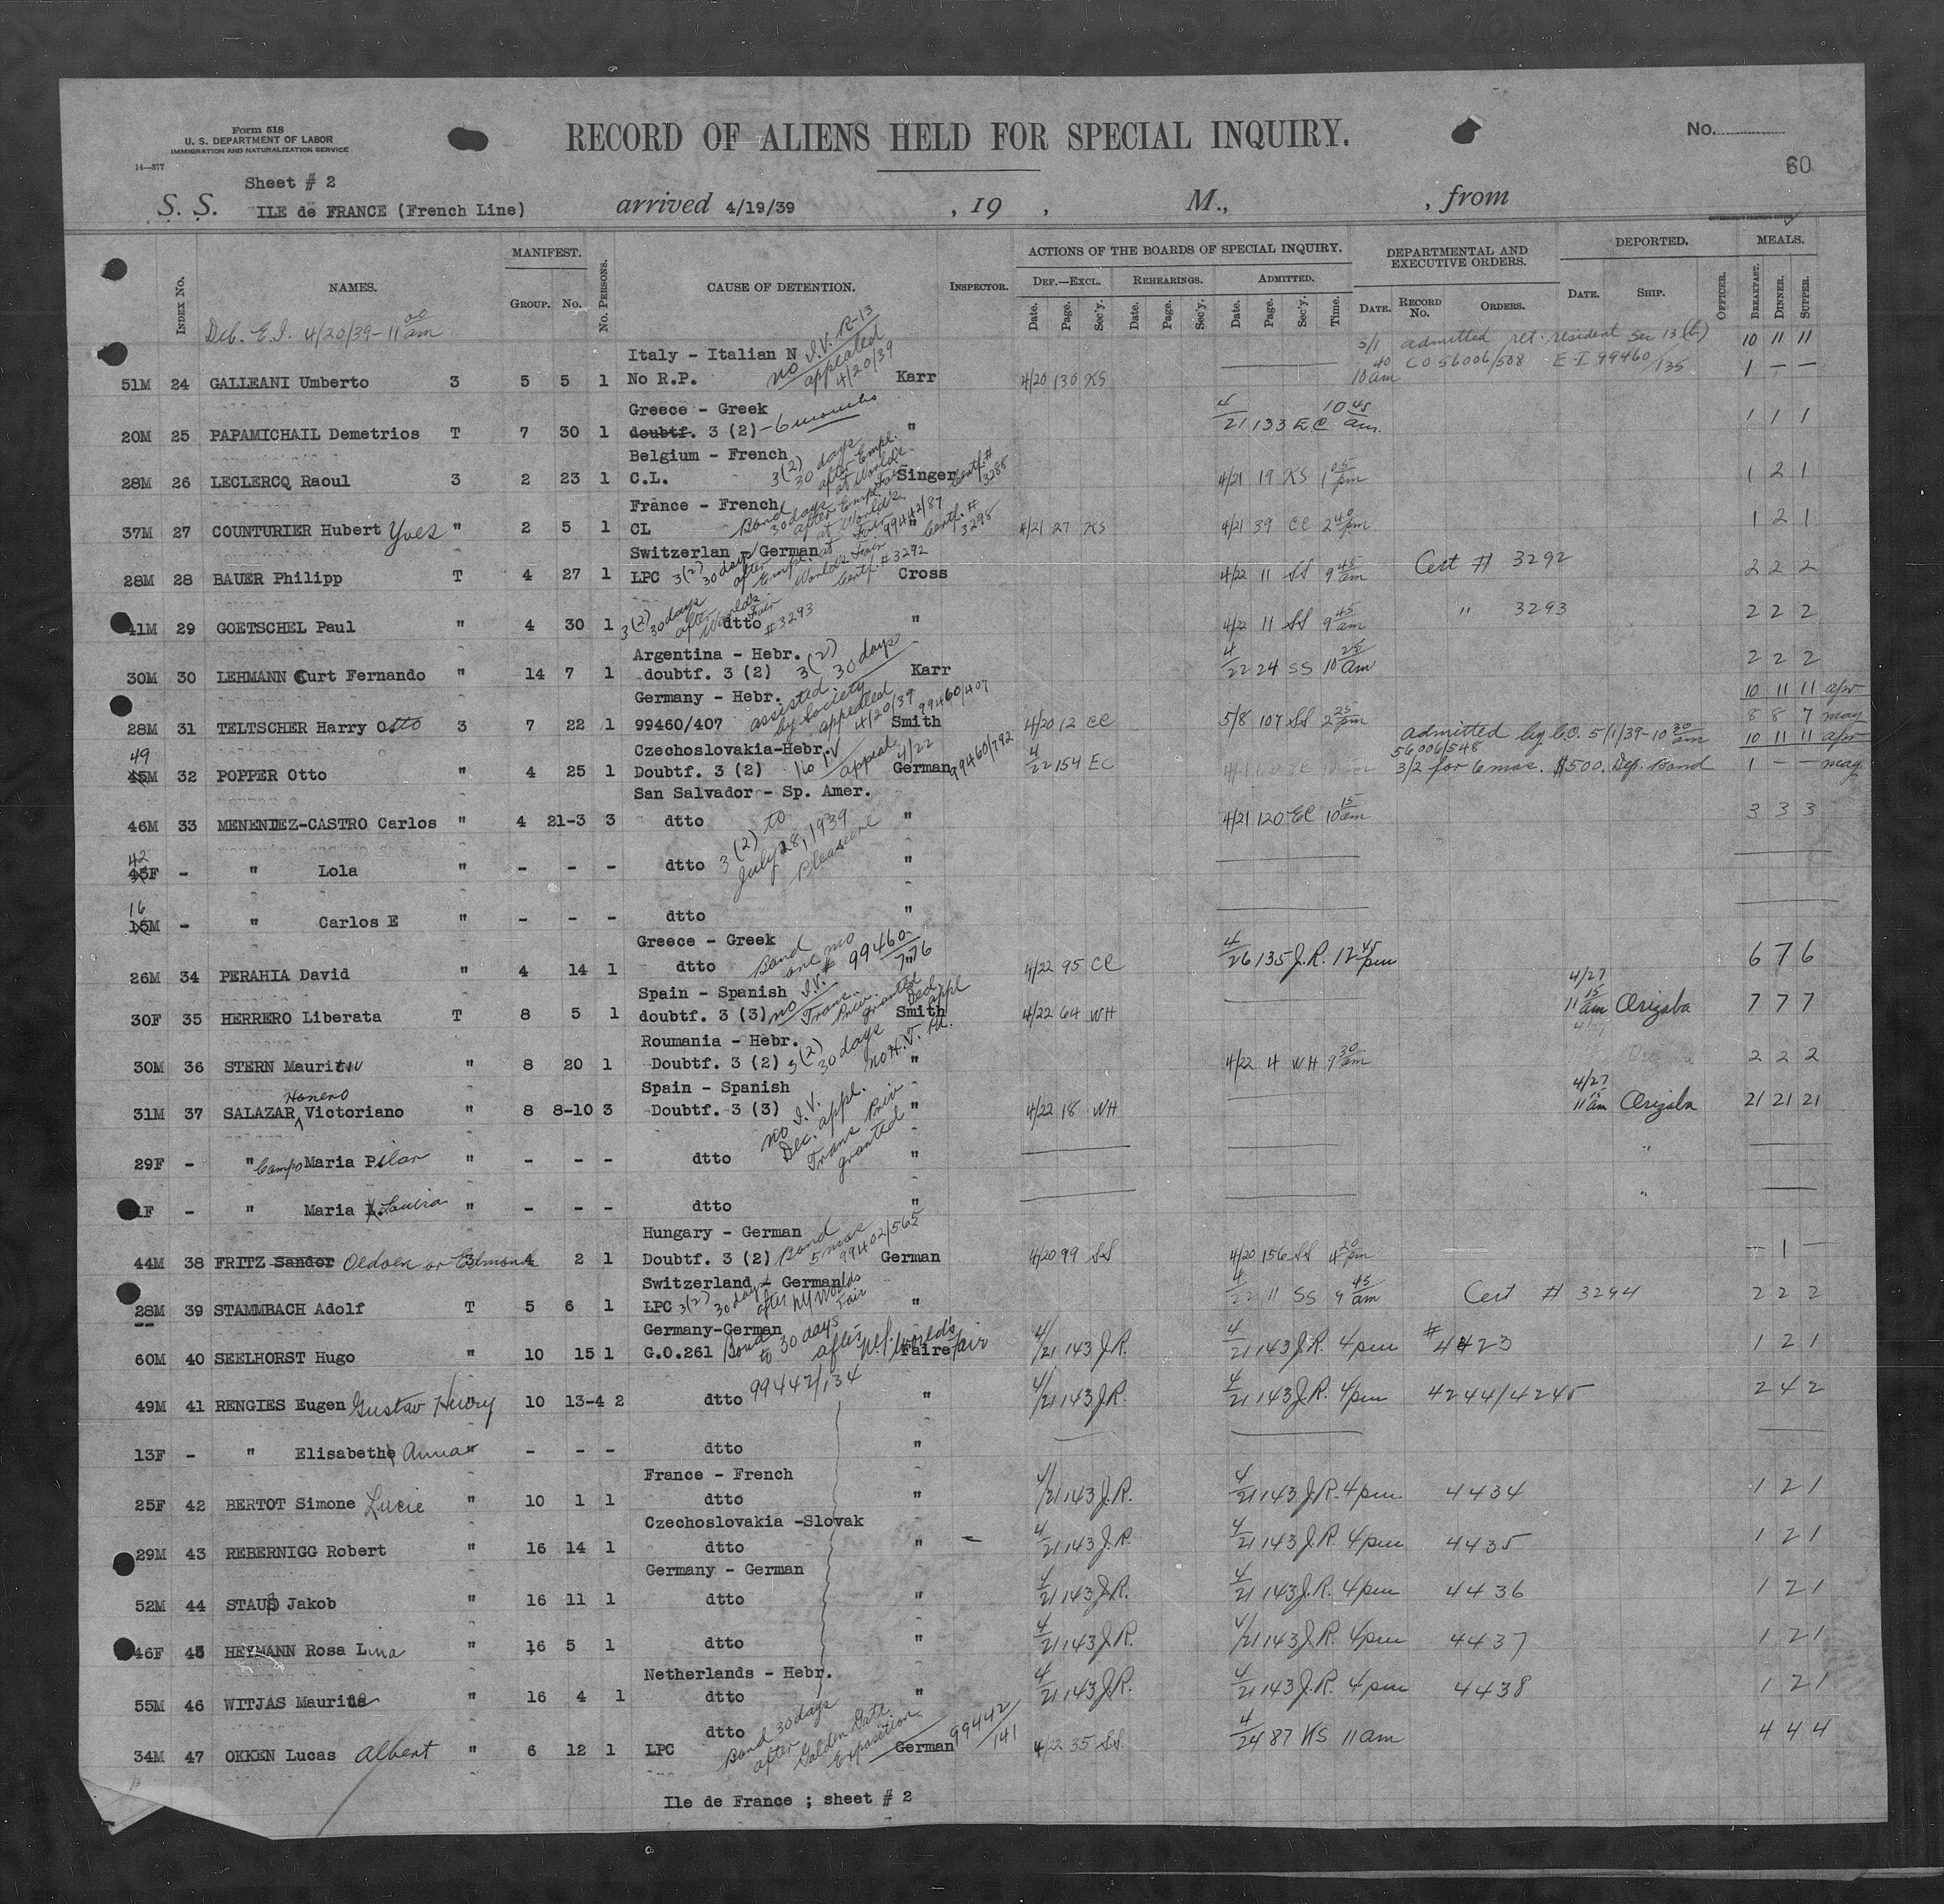 Form 518
U. S. DEPARTMENT OF LABOR
IMMIGRATION AND NATURALIZATION SERVICE
14—377
RECORD OF ALIENS HELD FOR SPECIAL INQUIRY.
No.
60
Sheet # 2
S. S. ILE de FRANCE (French Line) arrived 4/19/39 , 19 , M., , from
INDEX No. NAMES. MANIFEST. GROUP. No. No. PERSONS. CAUSE OF DETENTION. INSPECTOR. ACTIONS OF THE BOARDS OF SPECIAL INQUIRY. DEF.—EXCL. Date. Page. Sec'y. REHEARINGS. Date. Page. Sec'y. ADMITTED. Date. Page. Sec'y. Time. DEPARTMENTAL AND EXECUTIVE ORDERS. DATE. RECORD No. ORDERS. DEPORTED. DATE. SHIP. OFFICER. MEALS. BREAKFAST. DINNER. SUPPER.
Deb. E.I. 4/20/39 - 11 00 am
Italy - Italian N no I.V. R-13 appealed 4/20/39 5/1 admitted ret. resident Sec 13 (b) 10 11 11
51M 24 GALLEANI Umberto 3 5 5 1 No R.P. Karr 4/20 130 KS 10 am CO 56006/508 E-I 99460/135 1 — —
Greece - Greek
20M 25 PAPAMICHAIL Demetrios T 7 30 1 doubtf. 3 (2) - 6 months " 4/21 133 EC 10 45 am. 1 1 1
Belgium - French
28M 26 LECLERCQ Raoul 3 2 23 1 C.L. 3(2) 30 days after Empl. at World's Fair Singer Centf. # 3288 4/21 19 KS 1 05 pm 1 2 1
France - French
37M 27 COUNTURIER Hubert Yves " 2 5 1 CL Bond 30 days after Empl. at World's Fair 99442/87 " Centf. # 3298 4/21 27 KS 4/21 39 CC 2 40 pm 1 2 1
Switzerlan - German
28M 28 BAUER Philipp T 4 27 1 LPC 3(2) 30 days after Empl. at World's Fair Centf. # 3292 Cross 4/22 11 SS 9 45 am Cert # 3292 2 2 2
41M 29 GOETSCHEL Paul " 4 30 1 3(2) 30 days after World's Fair dtto #3293 " 4/22 11 SS 9 45 am " 3293 2 2 2
Argentina - Hebr.
30M 30 LEHMANN Curt Fernando " 14 7 1 doubtf. 3 (2) 3(2) 30 days Karr 4/22 24 SS 10 25 am 2 2 2
Germany - Hebr. assisted by Society appealed 4/20/39 99460/407 10 11 11 apr
28M 31 TELTSCHER Harry Otto 3 7 22 1 99460/407 Smith 4/20 12 CC 5/8 107 SS 2 25 pm 8 8 7 may
Czechoslovakia-Hebr. No IV appeal 4/22 99460/792 admitted by C.O. 5/1/39 - 10 30 am 10 11 11 apr
49 45M 32 POPPER Otto " 4 25 1 Doubtf. 3 (2) German 4/22 154 EC 56006/548 3/2 for 6 mos. $500. Dep. Bond 1 — — may
San Salvador - Sp. Amer.
46M 33 MENENDEZ-CASTRO Carlos " 4 21-3 3 dtto 3 (2) to July 28, 1939 Pleasure " 4/21 120 EC 10 15 am 3 3 3
42 45F - " Lola " - - - dtto "
16 15M - " Carlos E " - - - dtto "
Greece - Greek
26M 34 PERAHIA David " 4 14 1 dtto Bond one mo 99460/776 4/22 95 CC 4/26 135 J.R. 12 45 pm 6 7 6
Spain - Spanish
30F 35 HERRERO Liberata T 8 5 1 doubtf. 3 (3) no I.V. Trans. Priv. granted Dec. appl Smith 4/22 64 WH 4/27 11 15 am Orizaba 7 7 7
Roumania - Hebr.
30M 36 STERN Mauriciu " 8 20 1 Doubtf. 3 (2) 3(2) 30 days " 4/22 4 WH 9 30 am 2 2 2
Spain - Spanish
31M 37 SALAZAR Honero Victoriano " 8 8-10 3 Doubtf. 3 (3) no I.V. Dec. appl. Trans Priv granted " 4/22 18 WH 4/27 11 15 am Orizaba 21 21 21
29F - " Campo Maria Pilar " - - - dtto " "
1F - " Maria L. Luisa " - - - dtto " "
Hungary - German
44M 38 FRITZ Sandor or Edmond 3 4 2 1 Doubtf. 3 (2) Bond 5 mos 99402/565 German 4/20 99 SS 4/20 156 SS 4 30 pm — 1 —
Switzerland - German
28M 39 STAMMBACH Adolf T 5 6 1 LPC 3(2) 30 days after NY Worlds Fair " 4/22 11 SS 9 45 am Cert # 3294 2 2 2
Germany-German
60M 40 SEELHORST Hugo " 10 15 1 G.O.261 Bond to 30 days after N.Y. World's Fair Faire 4/21 143 J.R. 4/21 143 J.R. 4 pm # 4423 1 2 1
49M 41 RENGIES Eugen Gustav Henry " 10 13-4 2 dtto 99442/134 " 4/21 143 J.R. 4/21 143 J.R. 4 pm 4244/4245 2 4 2
13F - " Elisabeth Anna " - - - dtto "
France - French
25F 42 BERTOT Simone Lucie " 10 1 1 dtto " 4/21 143 J.R. 4/21 143 J.R. 4 pm 4434 1 2 1
Czechoslovakia -Slovak
29M 43 REBERNIGG Robert " 16 14 1 dtto " 4/21 143 J.R. 4/21 143 J.R. 4 pm 4435 1 2 1
Germany - German
52M 44 STAUB Jakob " 16 11 1 dtto " 4/21 143 J.R. 4/21 143 J.R. 4 pm 4436 1 2 1
46F 45 HEYMANN Rosa Lina " 16 5 1 dtto " 4/21 143 J.R. 4/21 143 J.R. 4 pm 4437 1 2 1
Netherlands - Hebr.
55M 46 WITJAS Maurits " 16 4 1 dtto " 4/21 143 J.R. 4/21 143 J.R. 4 pm 4438 1 2 1
dtto
34M 47 OKKEN Lucas Albert " 6 12 1 LPC Bond 30 days after Golden Gate Exposition German 99442/141 4/22 35 SS 4/24 87 KS 11 am 4 4 4
Ile de France ; sheet # 2